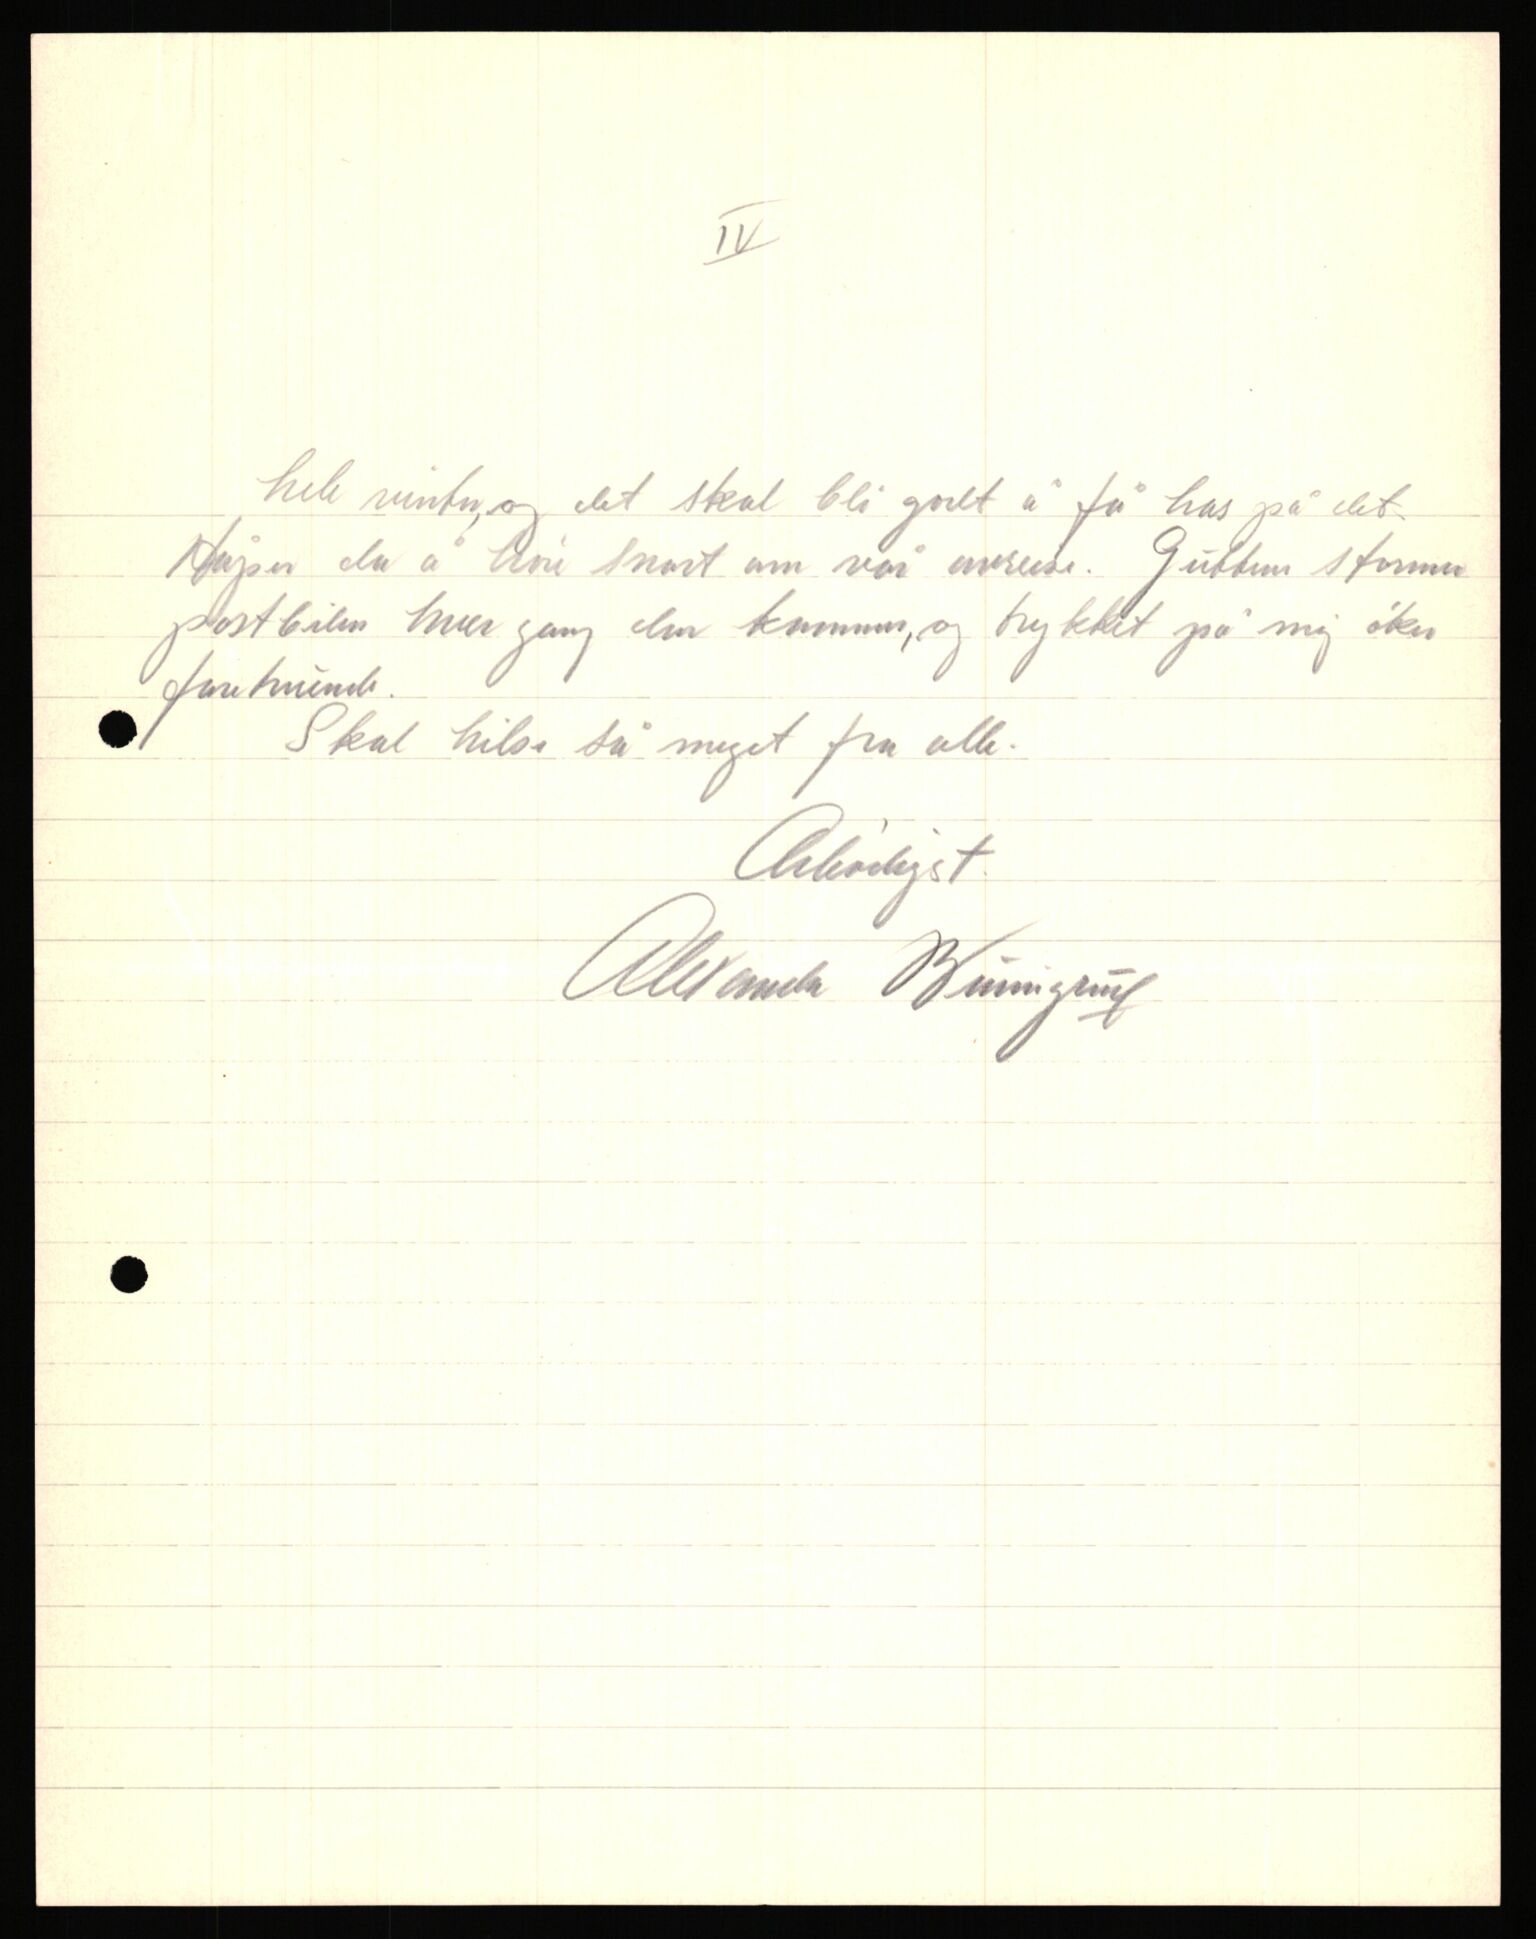 IV
hele vinter, og det skal bli godt å få has på det.
Håper da å höre snart om vår avreise. Gubben stormer
postbilen hver gang den kommer, og trykket på mig öker
foretruende.
Skal hilse så meget fra alle.
Ærbödigst.
Alexander